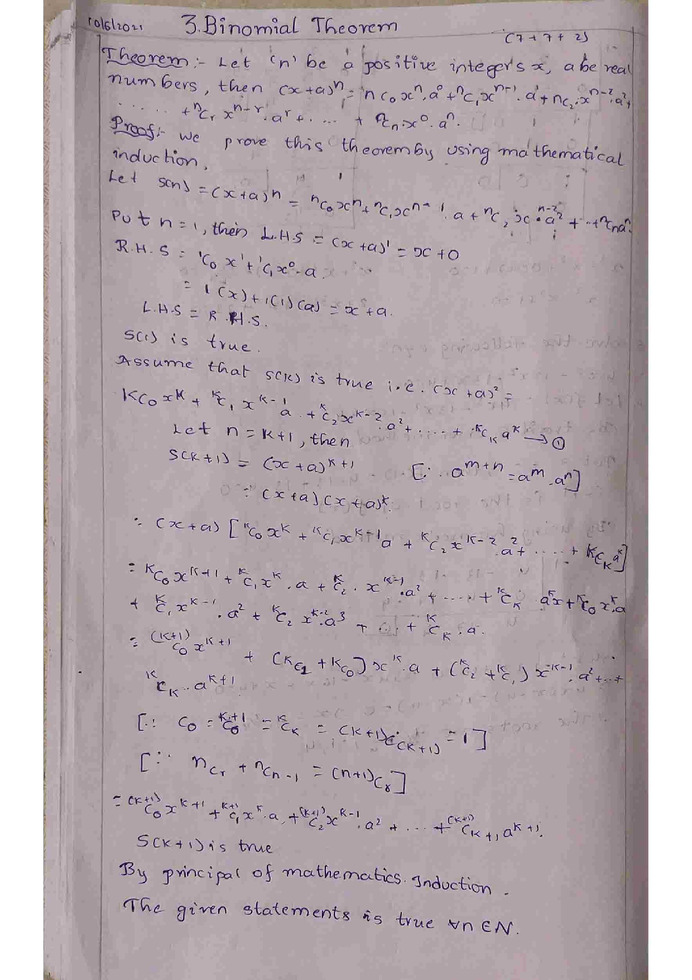 10/6/2021 3. Binomial Theorem (7+7+2)
Theorem :- Let 'n' be a positive integer's x, a be real
numbers, then (x+a)ⁿ = nC₀ xⁿ.a⁰ + ⁿC₁ xⁿ⁻¹.a¹ + nC₂.xⁿ⁻².a²+
...... + ⁿCᵣ xⁿ⁻ʳ.aʳ + .... + ⁿCₙ.x⁰.aⁿ.
Proof :- we prove this theorem by using mathematical
induction,
Let S(n) = (x+a)ⁿ = ⁿC₀xⁿ + ⁿC₁xⁿ⁻¹.a + ⁿC₂ xⁿ⁻².a² + ..+ ⁿCₙaⁿ
Put n=1, then L.H.S = (x+a)¹ = x+0
R.H.S = ¹C₀ x¹ + ¹C₁x⁰.a
= 1(x)+1(1)(a) = x+a.
L.H.S = R.H.S.
S(1) is true.
Assume that S(K) is true i.e. (x+a)² =
KC₀xᴷ + ᴷC₁ xᴷ⁻¹a + ᴷC₂xᴷ⁻².a² + ..... + ᴷCᴋ aᴷ → ①
Let n = K+1, then
S(K+1) = (x+a)ᴷ⁺¹ [∵ aᵐ⁺ⁿ = aᵐ.aⁿ]
= (x+a)(x+a)ᴷ.
= (x+a) [ᴷC₀xᴷ + ᴷC₁xᴷ⁺¹a + ᴷC₂xᴷ⁻².a² + ..... + ᴷCᴋaᴷ]
= ᴷC₀xᴷ⁺¹ + ᴷC₁xᴷ.a + ᴷC₂.xᴷ⁻¹.a² + ..... + ᴷCᴋ aᴷx + ᴷC₀xᴷ.a
+ ᴷC₁xᴷ⁻¹.a² + ᴷC₂ xᴷ⁻².a³ + ... + ᴷCᴋ.a.
= ⁽ᴷ⁺¹⁾C₀xᴷ⁺¹ + (ᴷC₁ + ᴷC₀)xᴷ.a + (ᴷC₂ + ᴷC₁)xᴷ⁻¹.a² +..+
ᴷCᴋ.aᴷ⁺¹
[∵ C₀ = ᴷ⁺¹C₀ = ᴷCᴋ = (K+1)C(K+1) = 1]
[∵ nCᵣ + nCₙ₋₁ = (n+1)Cᵣ]
= ⁽ᴷ⁺¹⁾C₀xᴷ⁺¹ + ᴷ⁺¹C₁xᴷ.a + ⁽ᴷ⁺¹⁾C₂xᴷ⁻¹.a² + ... + ⁽ᴷ⁺¹⁾Cᴋ₊₁aᴷ⁺¹.
S(K+1) is true
By principal of mathematics Induction.
The given statements is true ∀n∈N.